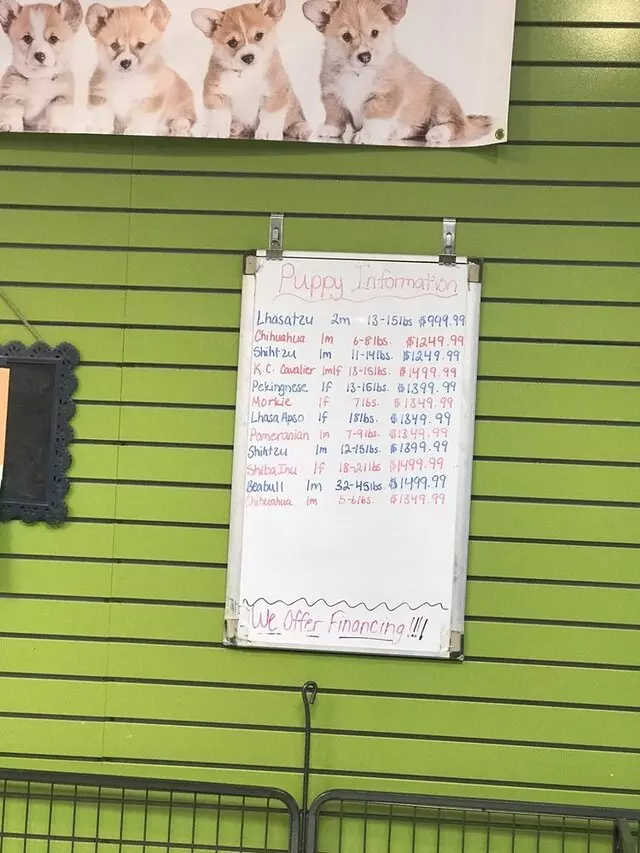 Puppy Information
Lhasatzu 2m 13-15lbs $999.99
Chihuahua 1m 6-8lbs. $1249.99
Shihtzu 1m 11-14lbs $1249.99
K.C. Cavalier 1m1f 13-15lbs. $1499.99
Pekingnese 1f 13-15lbs. $1399.99
Morkie 1f 7lbs. $1349.99
Lhasa Apso 1f 18lbs. $1349.99
Pomeranian 1m 7-9lbs. $1349.99
Shihtzu 1m 12-15lbs $1399.99
Shiba Inu 1f 18-21lbs $1499.99
Beabull 1m 32-45lbs $1499.99
Chihuahua 1m 5-6lbs. $1349.99
We Offer Financing!!!!